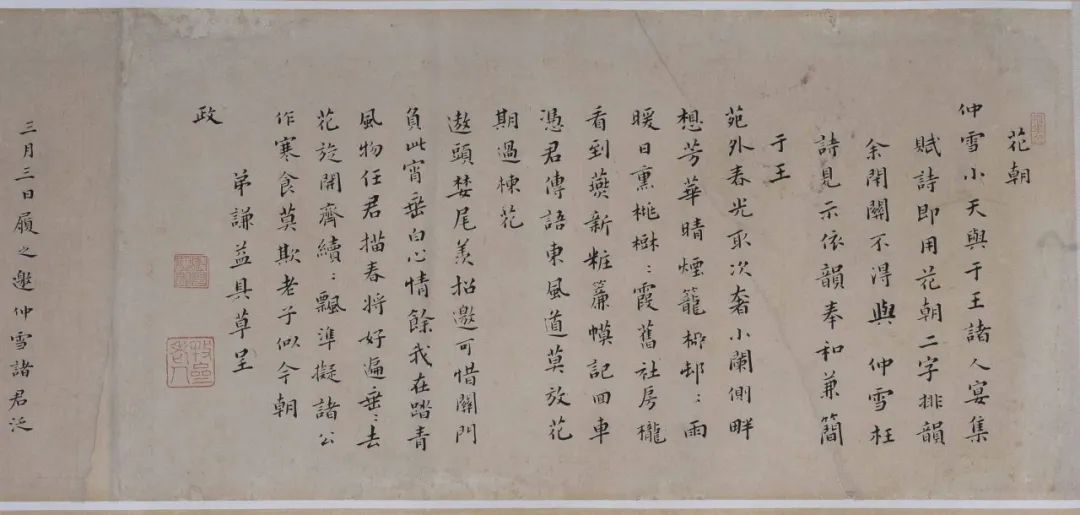 花朝
仲雪小天與于王諸人宴集
賦詩即用花朝二字排韻
余閉關不得與 仲雪枉
詩見示依韻奉和兼簡
于王
苑外春光取次奢小闌側畔
想芳華晴煙籠柳邨〻雨
暖日熏桃樹〻霞舊社房櫳
看到燕新粧簾幙記回車
憑君傳語東風道莫放花
期過楝花
遨頭婪尾羨招邀可惜關門
負此宵垂白心情餘我在踏青
風物任君描春將好遍垂〻去
花旋開齊續〻飄準擬諸公
作寒食莫欺老子似今朝
弟謙益具草呈
政
三月三日履之邀仲雪諸君泛